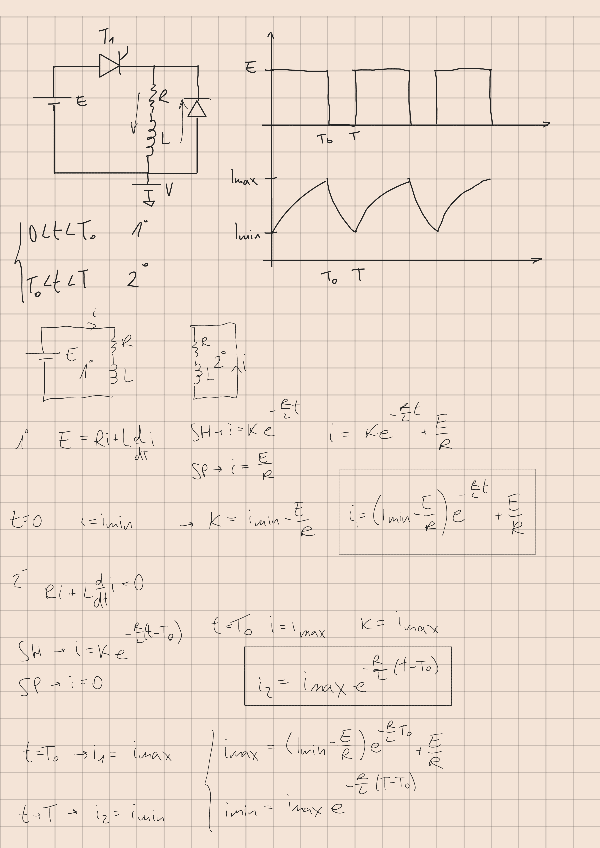 T1
E
R
L
V
E
To T
Imax
Imin
To T
0<t<To 1°
To<t<T 2°
i
E 1° R L
R 2° L i
1° E = Ri+L d/dt i SH→ i = K e^(-R/L t) i = K e^(-R/L t) + E/R
SP → i = E/R
t=0 i=imin → K = imin - E/R i = (Imin - E/R) e^(-R/L t) + E/R
2° Ri + L d/dt i = 0
SH → i = K e^(-R/L (t-To)) t=To i=imax K = imax
SP → i=0 i2 = imax e^(-R/L (t-To))
t=To → i1 = imax imax = (Imin - E/R) e^(-R/L To) + E/R
t=T → i2 = imin imin = imax e^(-R/L (T-To))